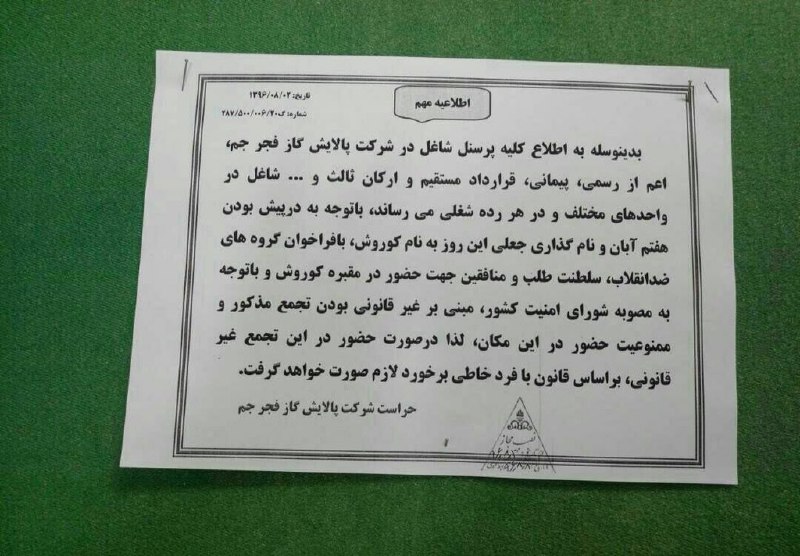 اطلاعیه مهم
تاریخ: ۱۳۹۶/۰۸/۰۲
شماره: ک۲۸۷/۵۰۰/۰۰۶/۲۰
بدینوسله به اطلاع کلیه پرسنل شاغل در شرکت پالایش گاز فجر جم،
اعم از رسمی، پیمانی، قرارداد مستقیم و ارکان ثالث و ... شاغل در
واحدهای مختلف و در هر رده شغلی می رساند، باتوجه به درپیش بودن
هفتم آبان و نام گذاری جعلی این روز به نام کوروش، بافراخوان گروه های
ضدانقلاب، سلطنت طلب و منافقین جهت حضور در مقبره کوروش و باتوجه
به مصوبه شورای امنیت کشور، مبنی بر غیر قانونی بودن تجمع مذکور و
ممنوعیت حضور در این مکان، لذا درصورت حضور در این تجمع غیر
قانونی، براساس قانون با فرد خاطی برخورد لازم صورت خواهد گرفت.
حراست شرکت پالایش گاز فجر جم
نصب مجاز